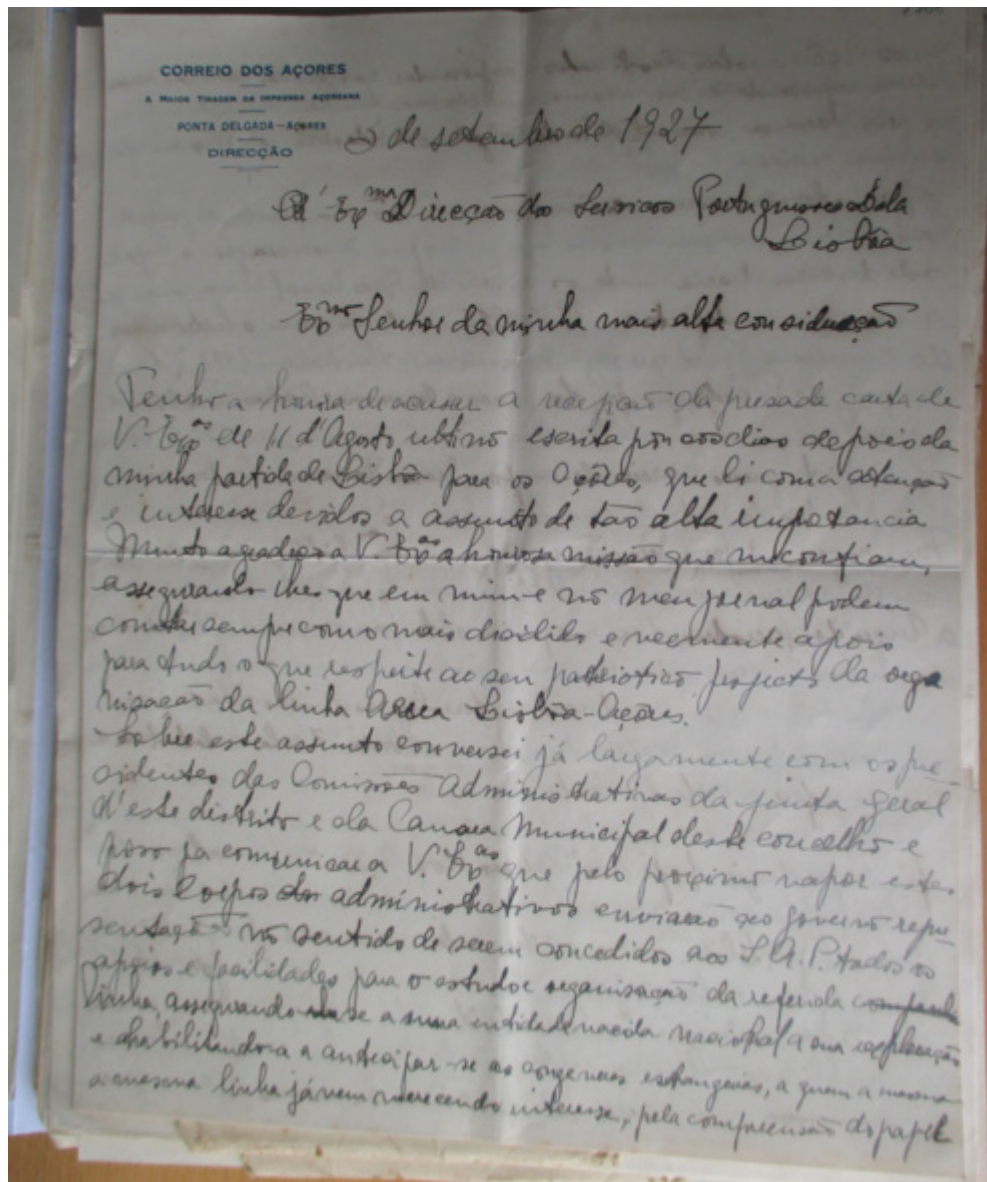 CORREIO DOS AÇORES
A MAIOR TIRAGEM DA IMPRENSA AÇOREANA
PONTA DELGADA—AÇORES
DIRECÇÃO
de setembro de 1927
Á Exma Direcção dos Servicos Portugueses
Lisbôa
Exmo Senhor da minha mais alta consideração
Tenho a honra de acusar a recepção da presada carta de
V. Exas de 11 d'Agosto ultimo escrita poucos dias depois da
minha partida de Lisbôa para os Açôres, que li com a atenção
e interesse devidos a assunto de tão alta importancia
Muito agradeço a V. Exas a honrosa missão que me confiam,
assegurando-lhes que em mim e no meu jornal podem
contar sempre com o mais decidido e veemente apoio
para tudo o que respeite ao seu patriotico projecto da orga
nisação da linha Aerea Lisbôa-Açôres.
Sobre este assunto conversei já largamente com os pre-
sidentes das Comissões Administrativas da junta geral
d'este distrito e da Camara Municipal deste concelho e
posso ja comunicar a V. Exas que pelo proximo vapor estes
dois corpos administrativos enviarão ao governo repre-
sentação no sentido de serem concedidos aos S.A.P. todos os
apoios e facilidades para o estudo e organisação da referida
linha, assegurando-se a uma entidade nacional a sua exploração
e habilitando-a a antecipar-se ás congeneres estrangeiras, a quem a mesma
a mesma linha já vem merecendo interesse, pela compreensão do papel